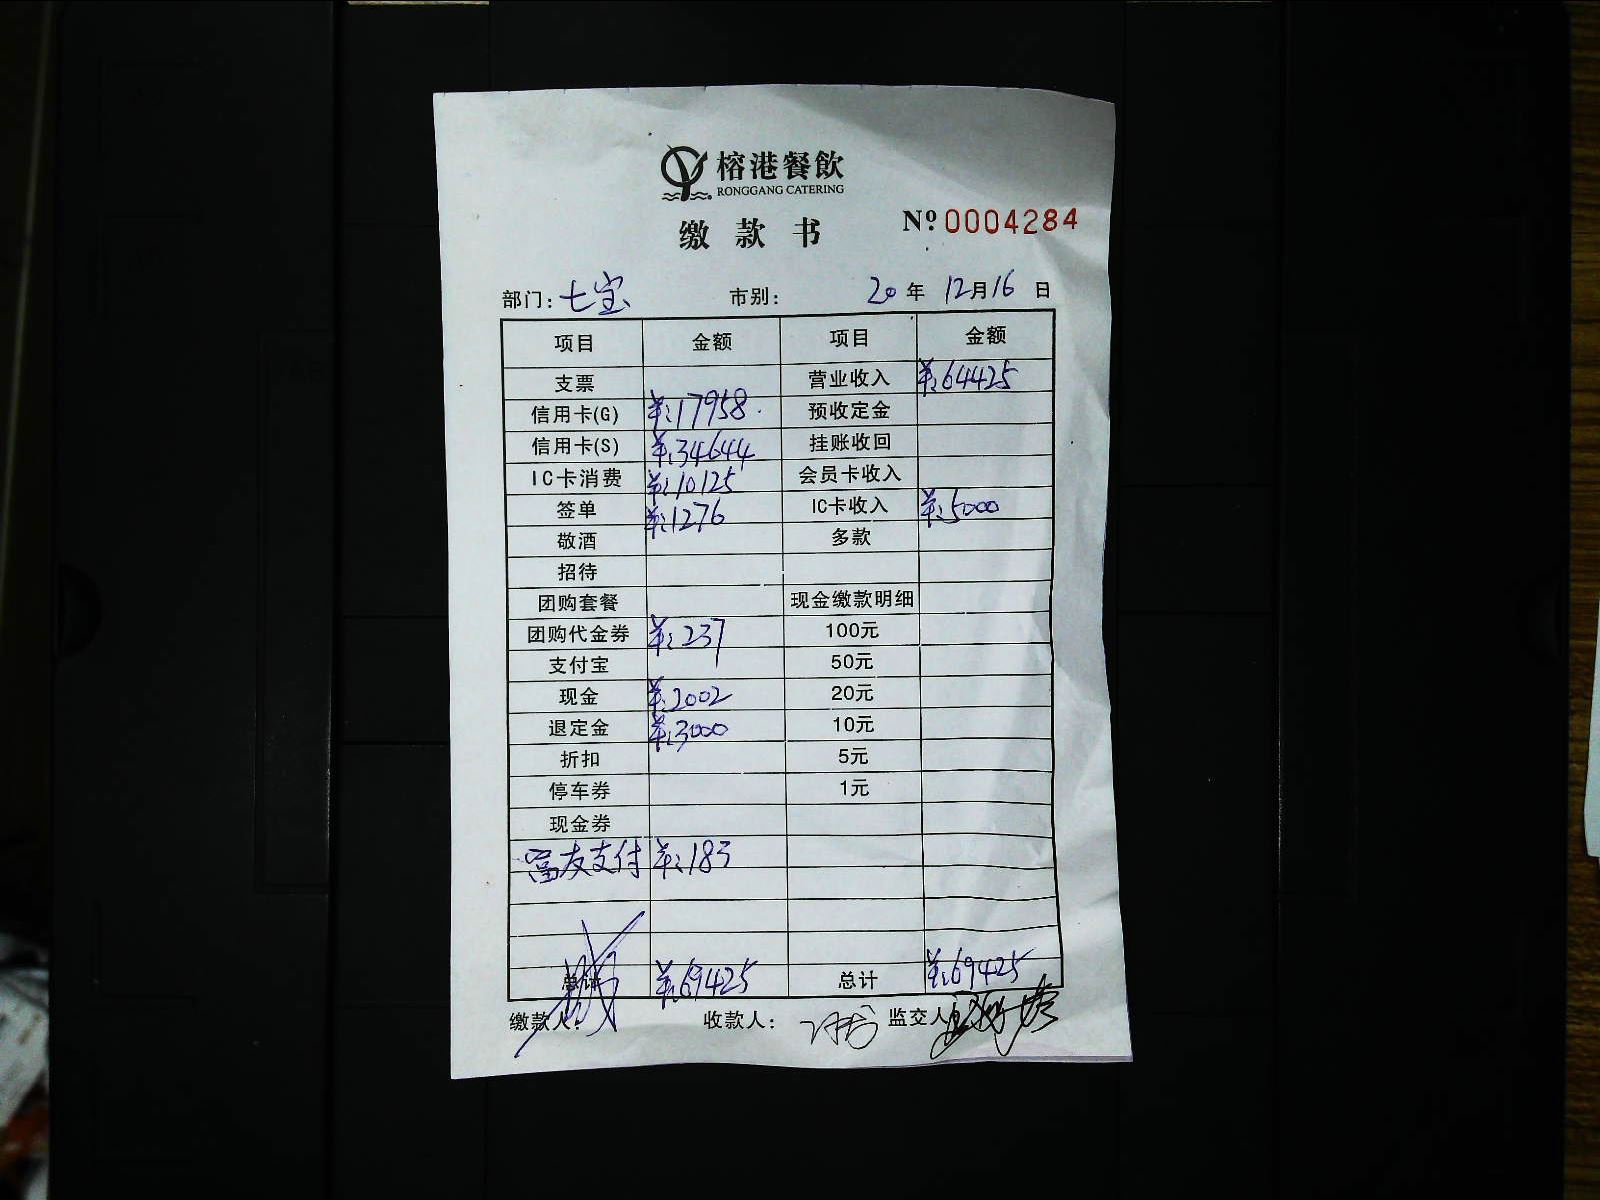 榕港餐飲
RONGGANG CATERING
缴款书 Nº 0004284
部门: 七宝 市别: 20年 12月16日
项目 金额 项目 金额
支票 营业收入 ¥:64425
信用卡(G) ¥:17958. 预收定金
信用卡(S) ¥:34644 挂账收回
IC卡消费 ¥:10125 会员卡收入
签单 ¥:1276 IC卡收入 ¥:5000
敬酒 多款
招待
团购套餐 现金缴款明细
团购代金券 ¥:237 100元
支付宝 50元
现金 ¥:2002 20元
退定金 ¥:3000 10元
折扣 5元
停车券 1元
现金券
富友支付 ¥:183
总计 ¥:69425 总计 ¥:69425
缴款人: 收款人: 监交人